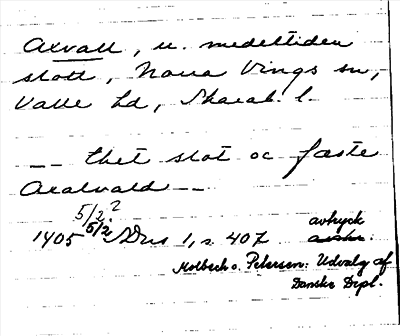 Axvall, u. medeltiden
slott, Norra Vings sn,
Valle hd, Skarab. l.
-- thet slot oc faste
Axalvald --
5/2?
1405 5/2 SDns 1, s. 407 avtryck
Molbech o. Petersen: Udvalg af
Danske Dipl.